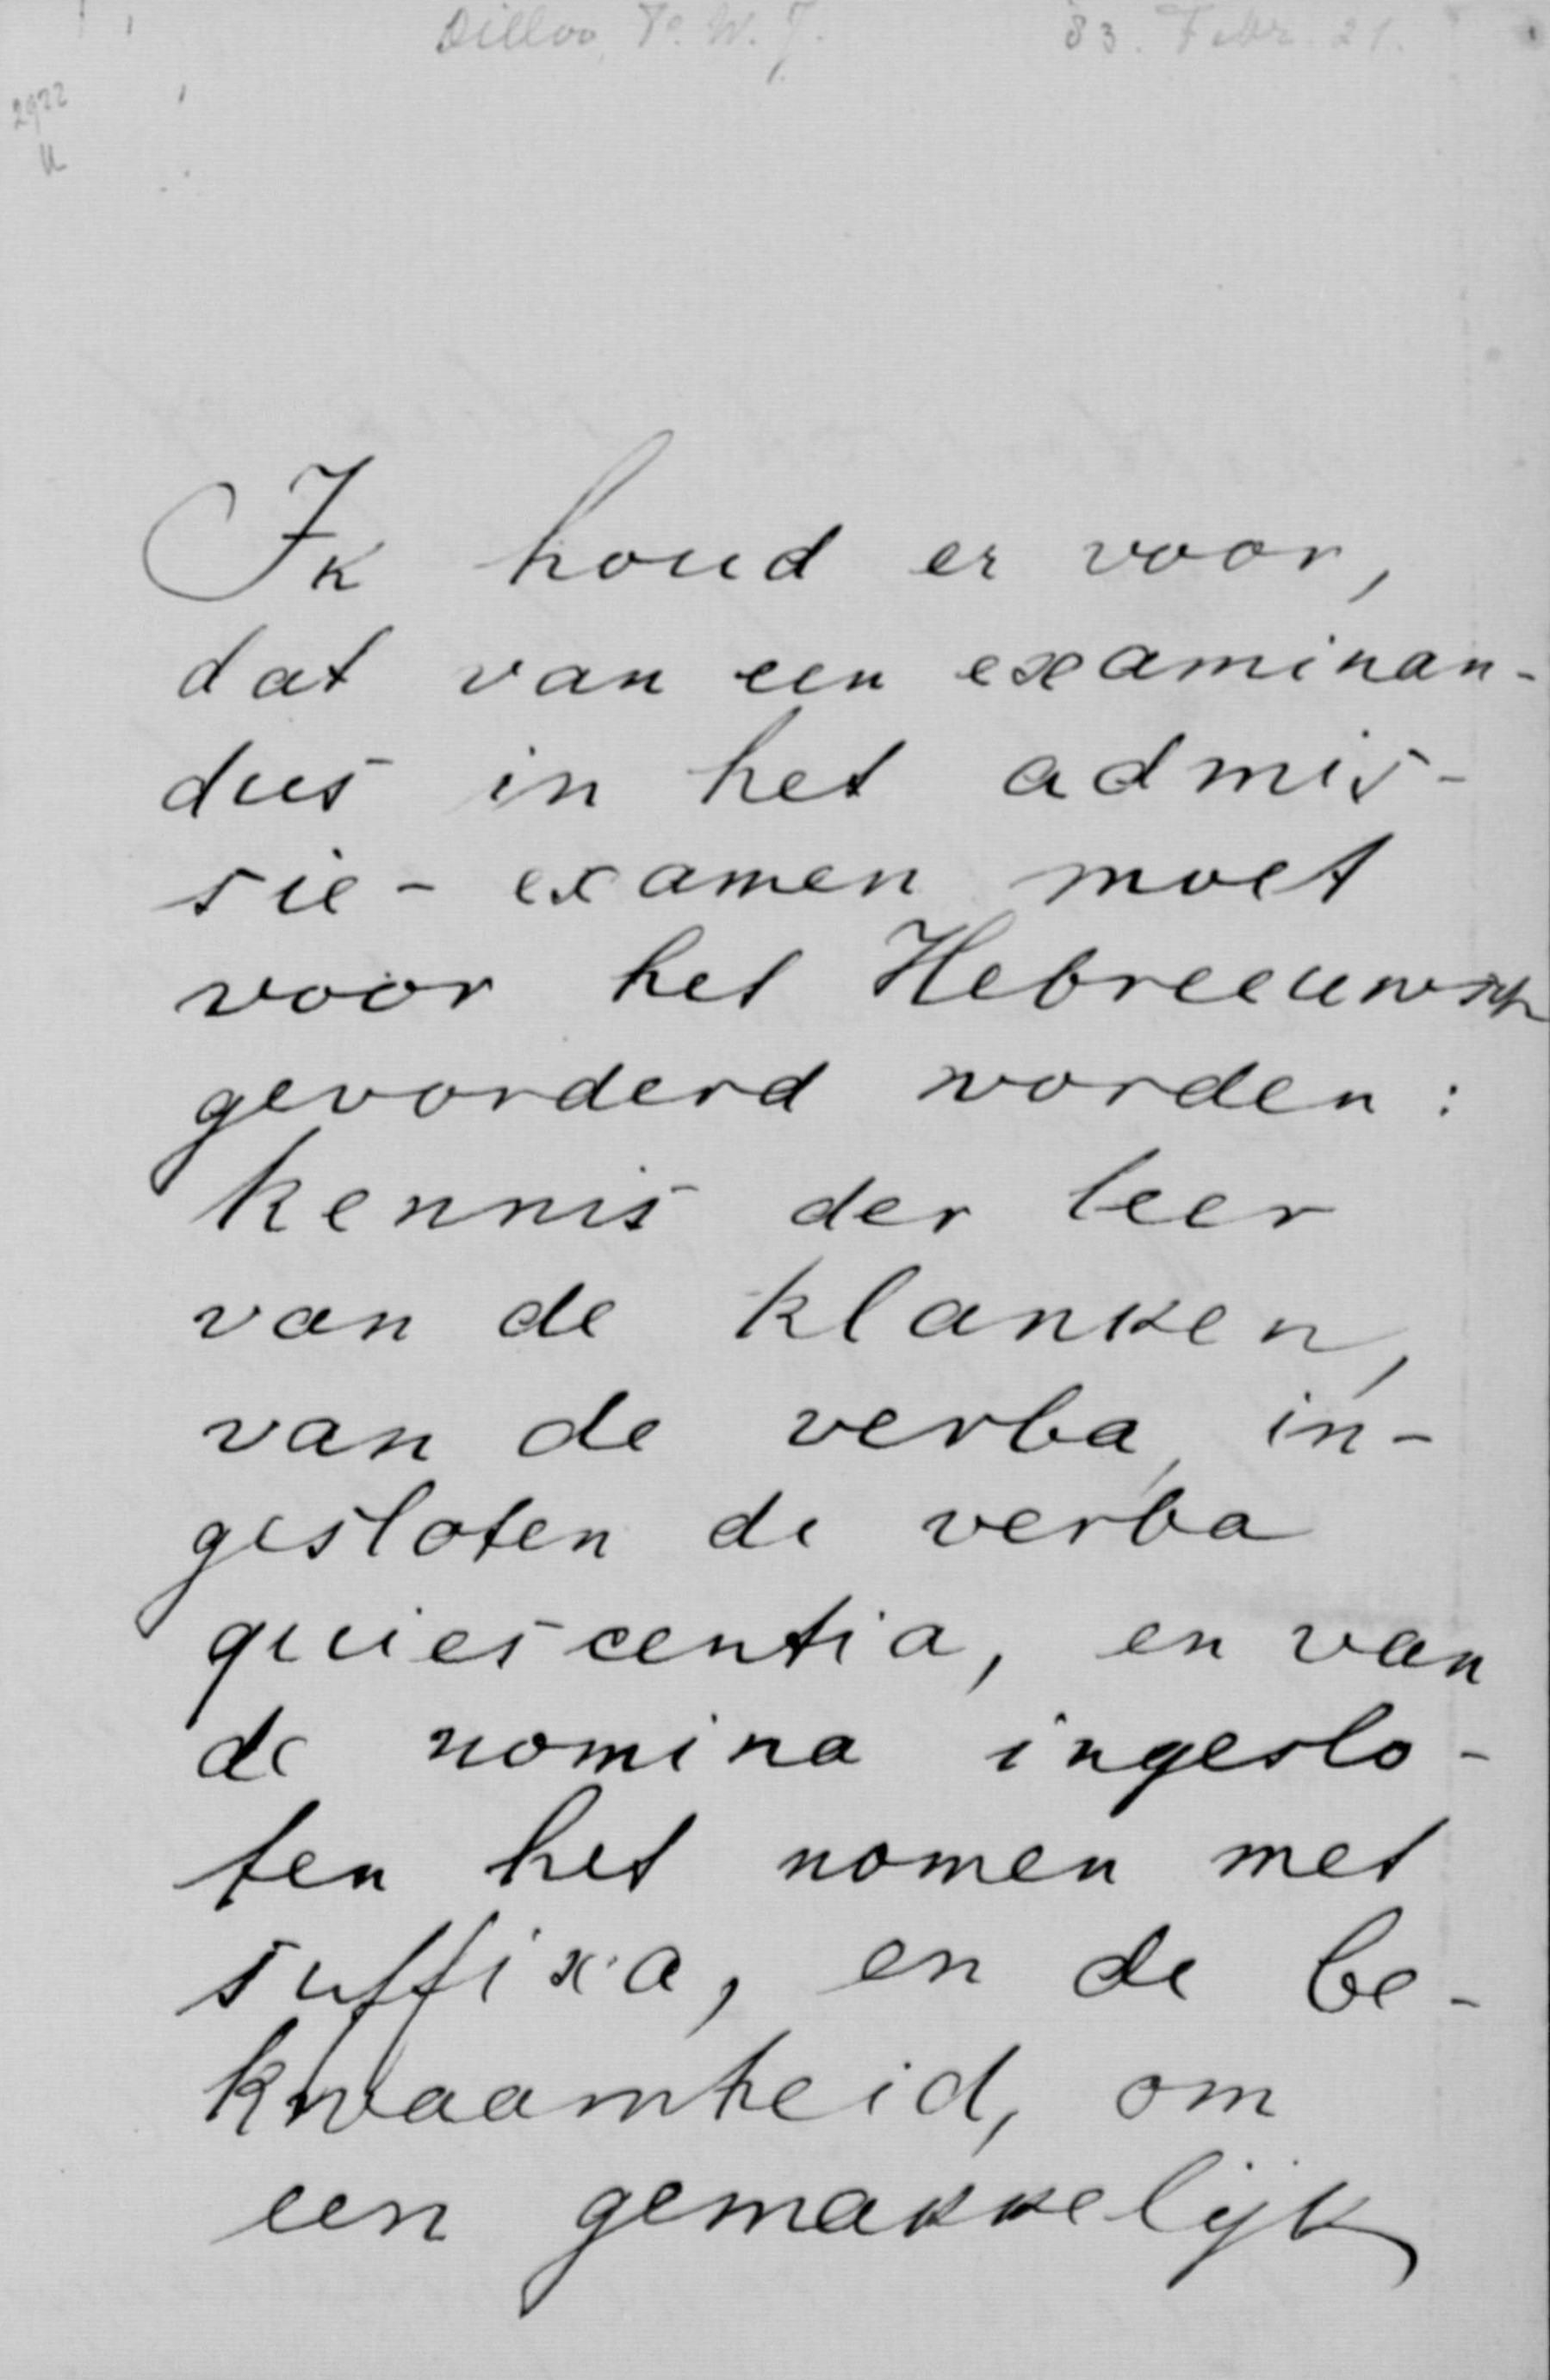 Dilloo, F. W. J. 83. Febr. 21.
2922
Ik houd er voor,
dat van een examinan-
dus in het admis-
sie-examen moet
voor het Hebreeuwsch
gevorderd worden:
kennis der leer
van de klanken,
van de verba, in-
gesloten de verba
quiescentia, en van
de nomina ingeslo-
ten het nomen met
suffixa, en de be-
kwaamheid, om
een gemakkelijk